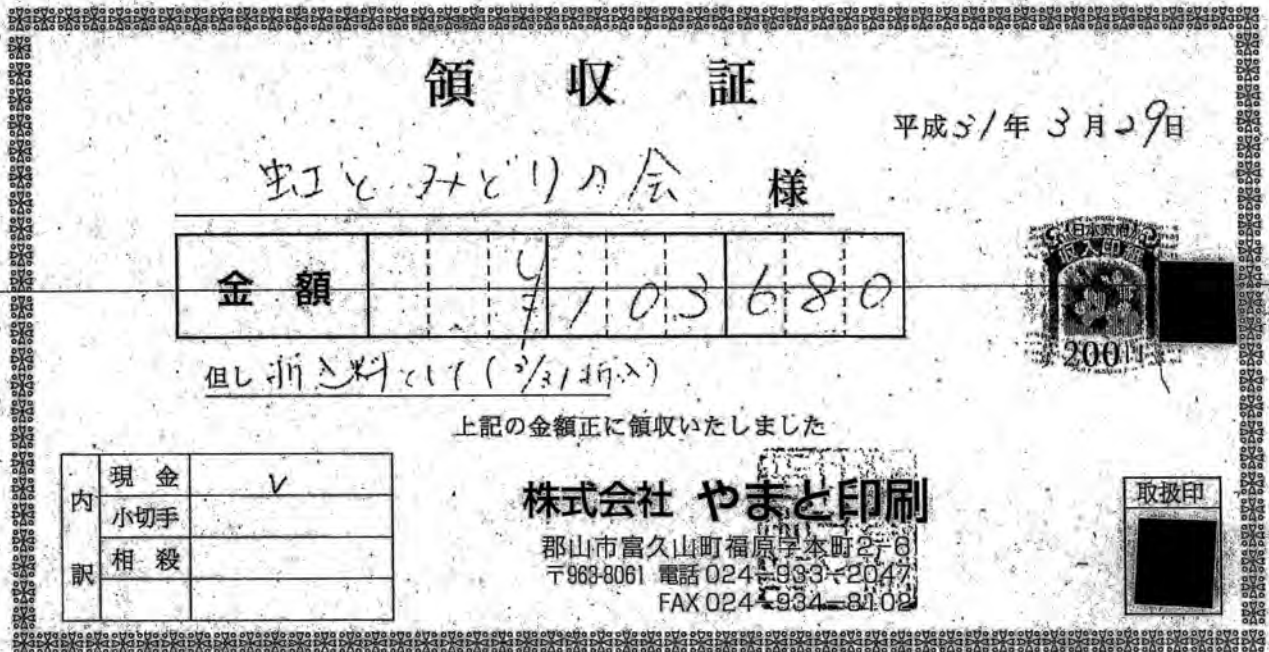 領収証
平成31年3月29日
虹とみどりの会 様
金額 ¥103680
但し 折込料として(3/31折込)
日本政府
収入印紙
200円
上記の金額正に領収いたしました
内訳
現金 V
小切手
相殺
株式会社 やまと印刷
郡山市富久山町福原字本町2-6
〒963-8061 電話024-933-2047
FAX 024-934-8102
取扱印